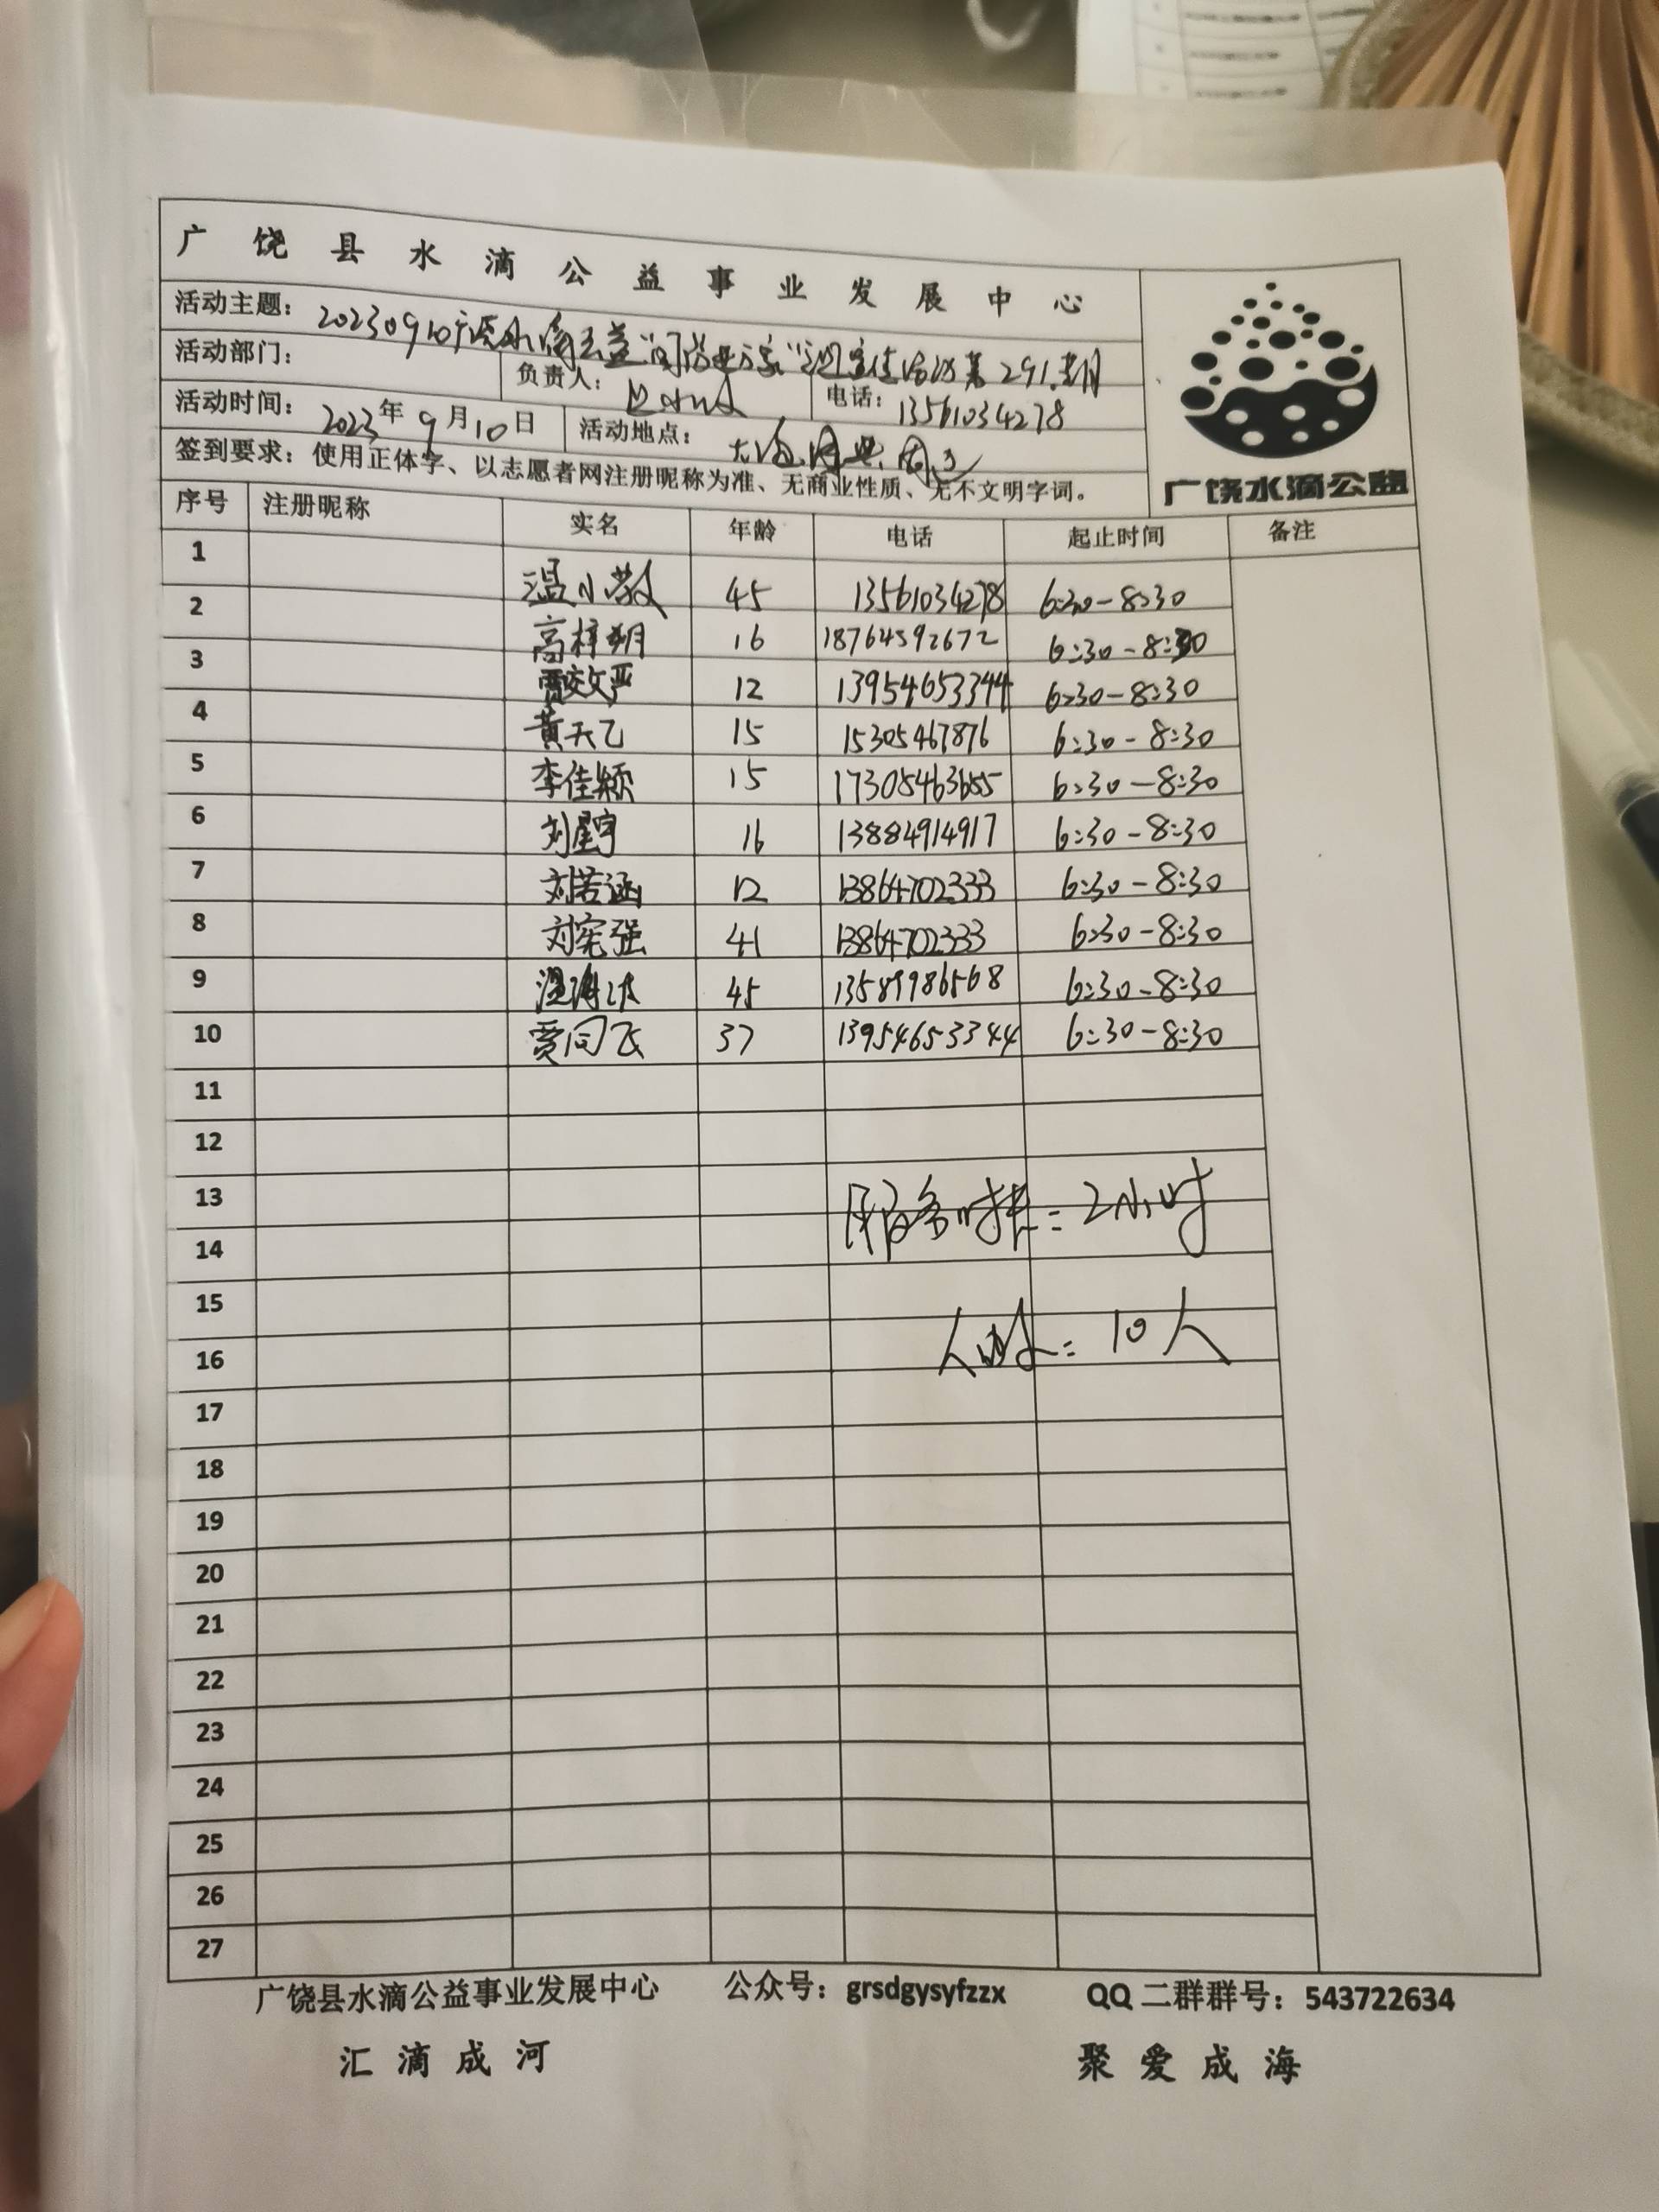 广饶县水滴公益事业发展中心
活动主题：20230910广饶水滴公益 第291期
活动部门： 负责人： 电话：13561034278
活动时间：2023年9月10日 活动地点：
签到要求：使用正体字、以志愿者网注册昵称为准、无商业性质、无不文明字词。
广饶水滴公益
序号 注册昵称 实名 年龄 电话 起止时间 备注
1 温小敏 45 13561034278 6:30-8:30
2 高梓朔 16 18764592672 6:30-8:30
3 贾效严 12 13954653344 6:30-8:30
4 黄天乙 15 15305467876 6:30-8:30
5 李佳颖 15 17305463655 6:30-8:30
6 刘星宇 16 13884914917 6:30-8:30
7 刘若涵 12 13864702333 6:30-8:30
8 刘宪强 41 13864702333 6:30-8:30
9 45 13589986568 6:30-8:30
10 贾同飞 37 13954653344 6:30-8:30
11
12
13 服务时长：2小时
14
15
16 10人
17
18
19
20
21
22
23
24
25
26
27
广饶县水滴公益事业发展中心 公众号：grsdgysyfzzx QQ二群群号：543722634
汇滴成河 聚爱成海